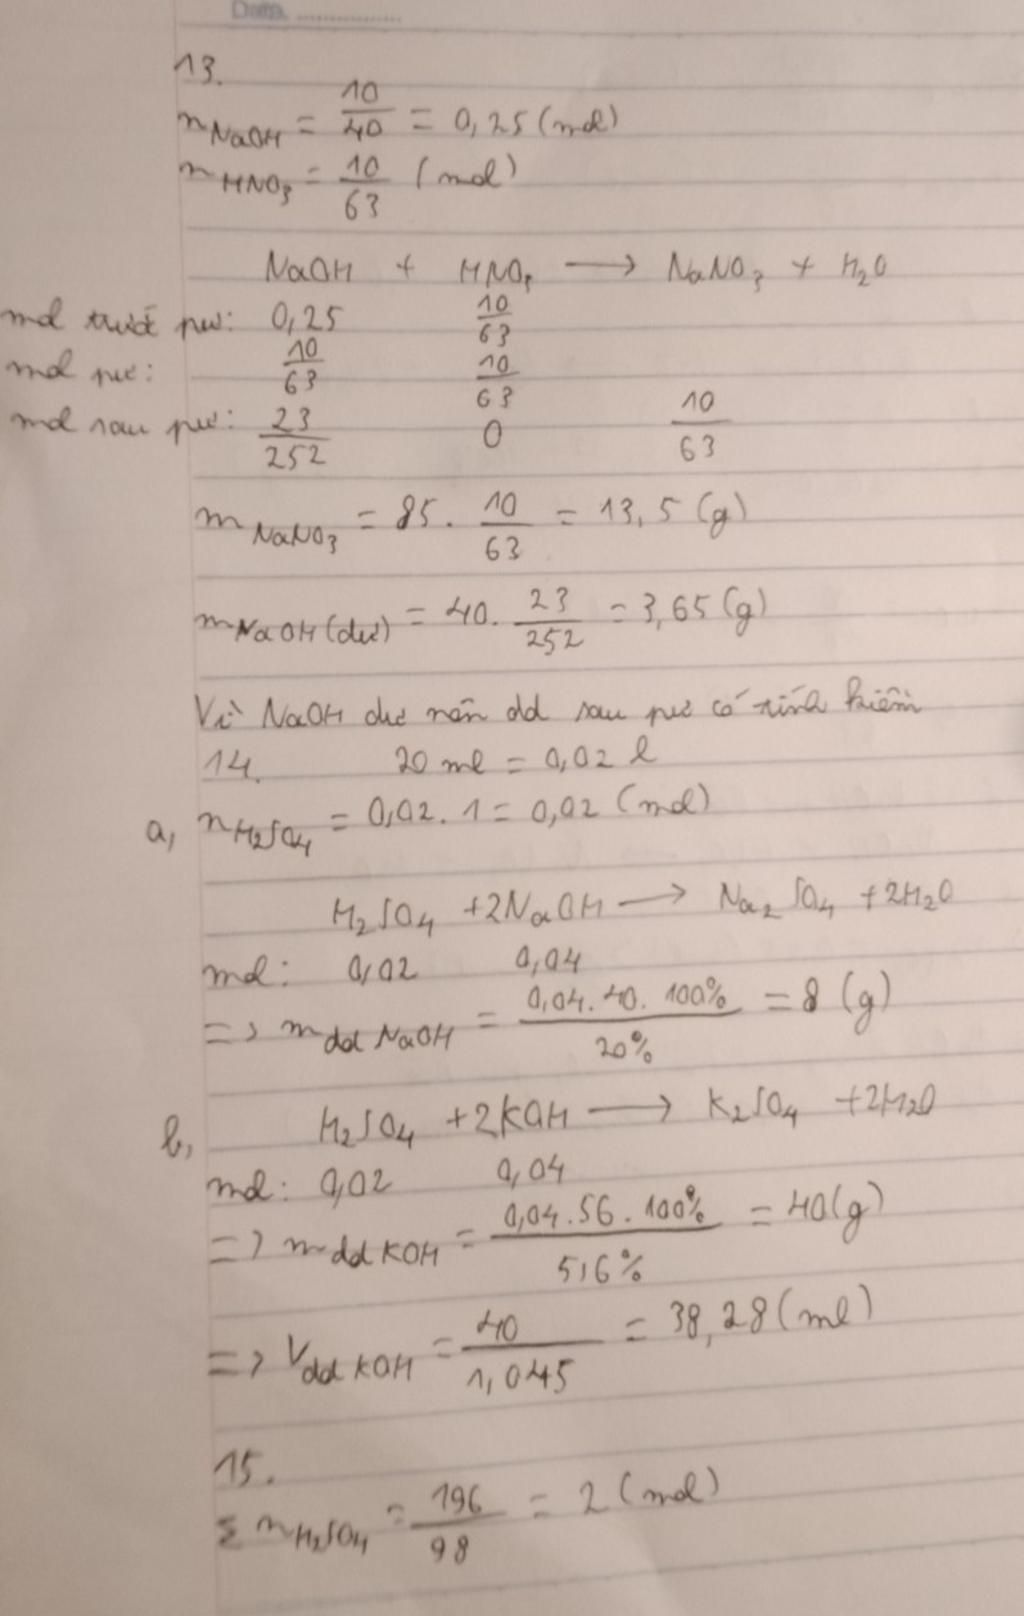 Date. ...............
13.
n NaOH = 10/40 = 0,25 (mol)
n HNO₃ = 10/63 (mol)
NaOH + HNO₃ ⟶ NaNO₃ + H₂O
mol trước pư: 0,25 10/63
mol pư: 10/63 10/63
mol sau pư: 23/252 0 10/63
m NaNO₃ = 85 . 10/63 = 13,5 (g)
m NaOH (dư) = 40 . 23/252 = 3,65 (g)
Vì NaOH dư nên dd sau pư có tính kiềm
14. 20 ml = 0,02 l
a, n H₂SO₄ = 0,02 . 1 = 0,02 (mol)
H₂SO₄ + 2NaOH ⟶ Na₂SO₄ + 2H₂O
mol: 0,02 0,04
=> m dd NaOH = 0,04 . 40 . 100% / 20% = 8 (g)
b, H₂SO₄ + 2KOH ⟶ K₂SO₄ + 2H₂O
mol: 0,02 0,04
=> m dd KOH = 0,04 . 56 . 100% / 5,6% = 40 (g)
=> V dd KOH = 40 / 1,045 = 38,28 (ml)
15.
Σ n H₂SO₄ = 196/98 = 2 (mol)